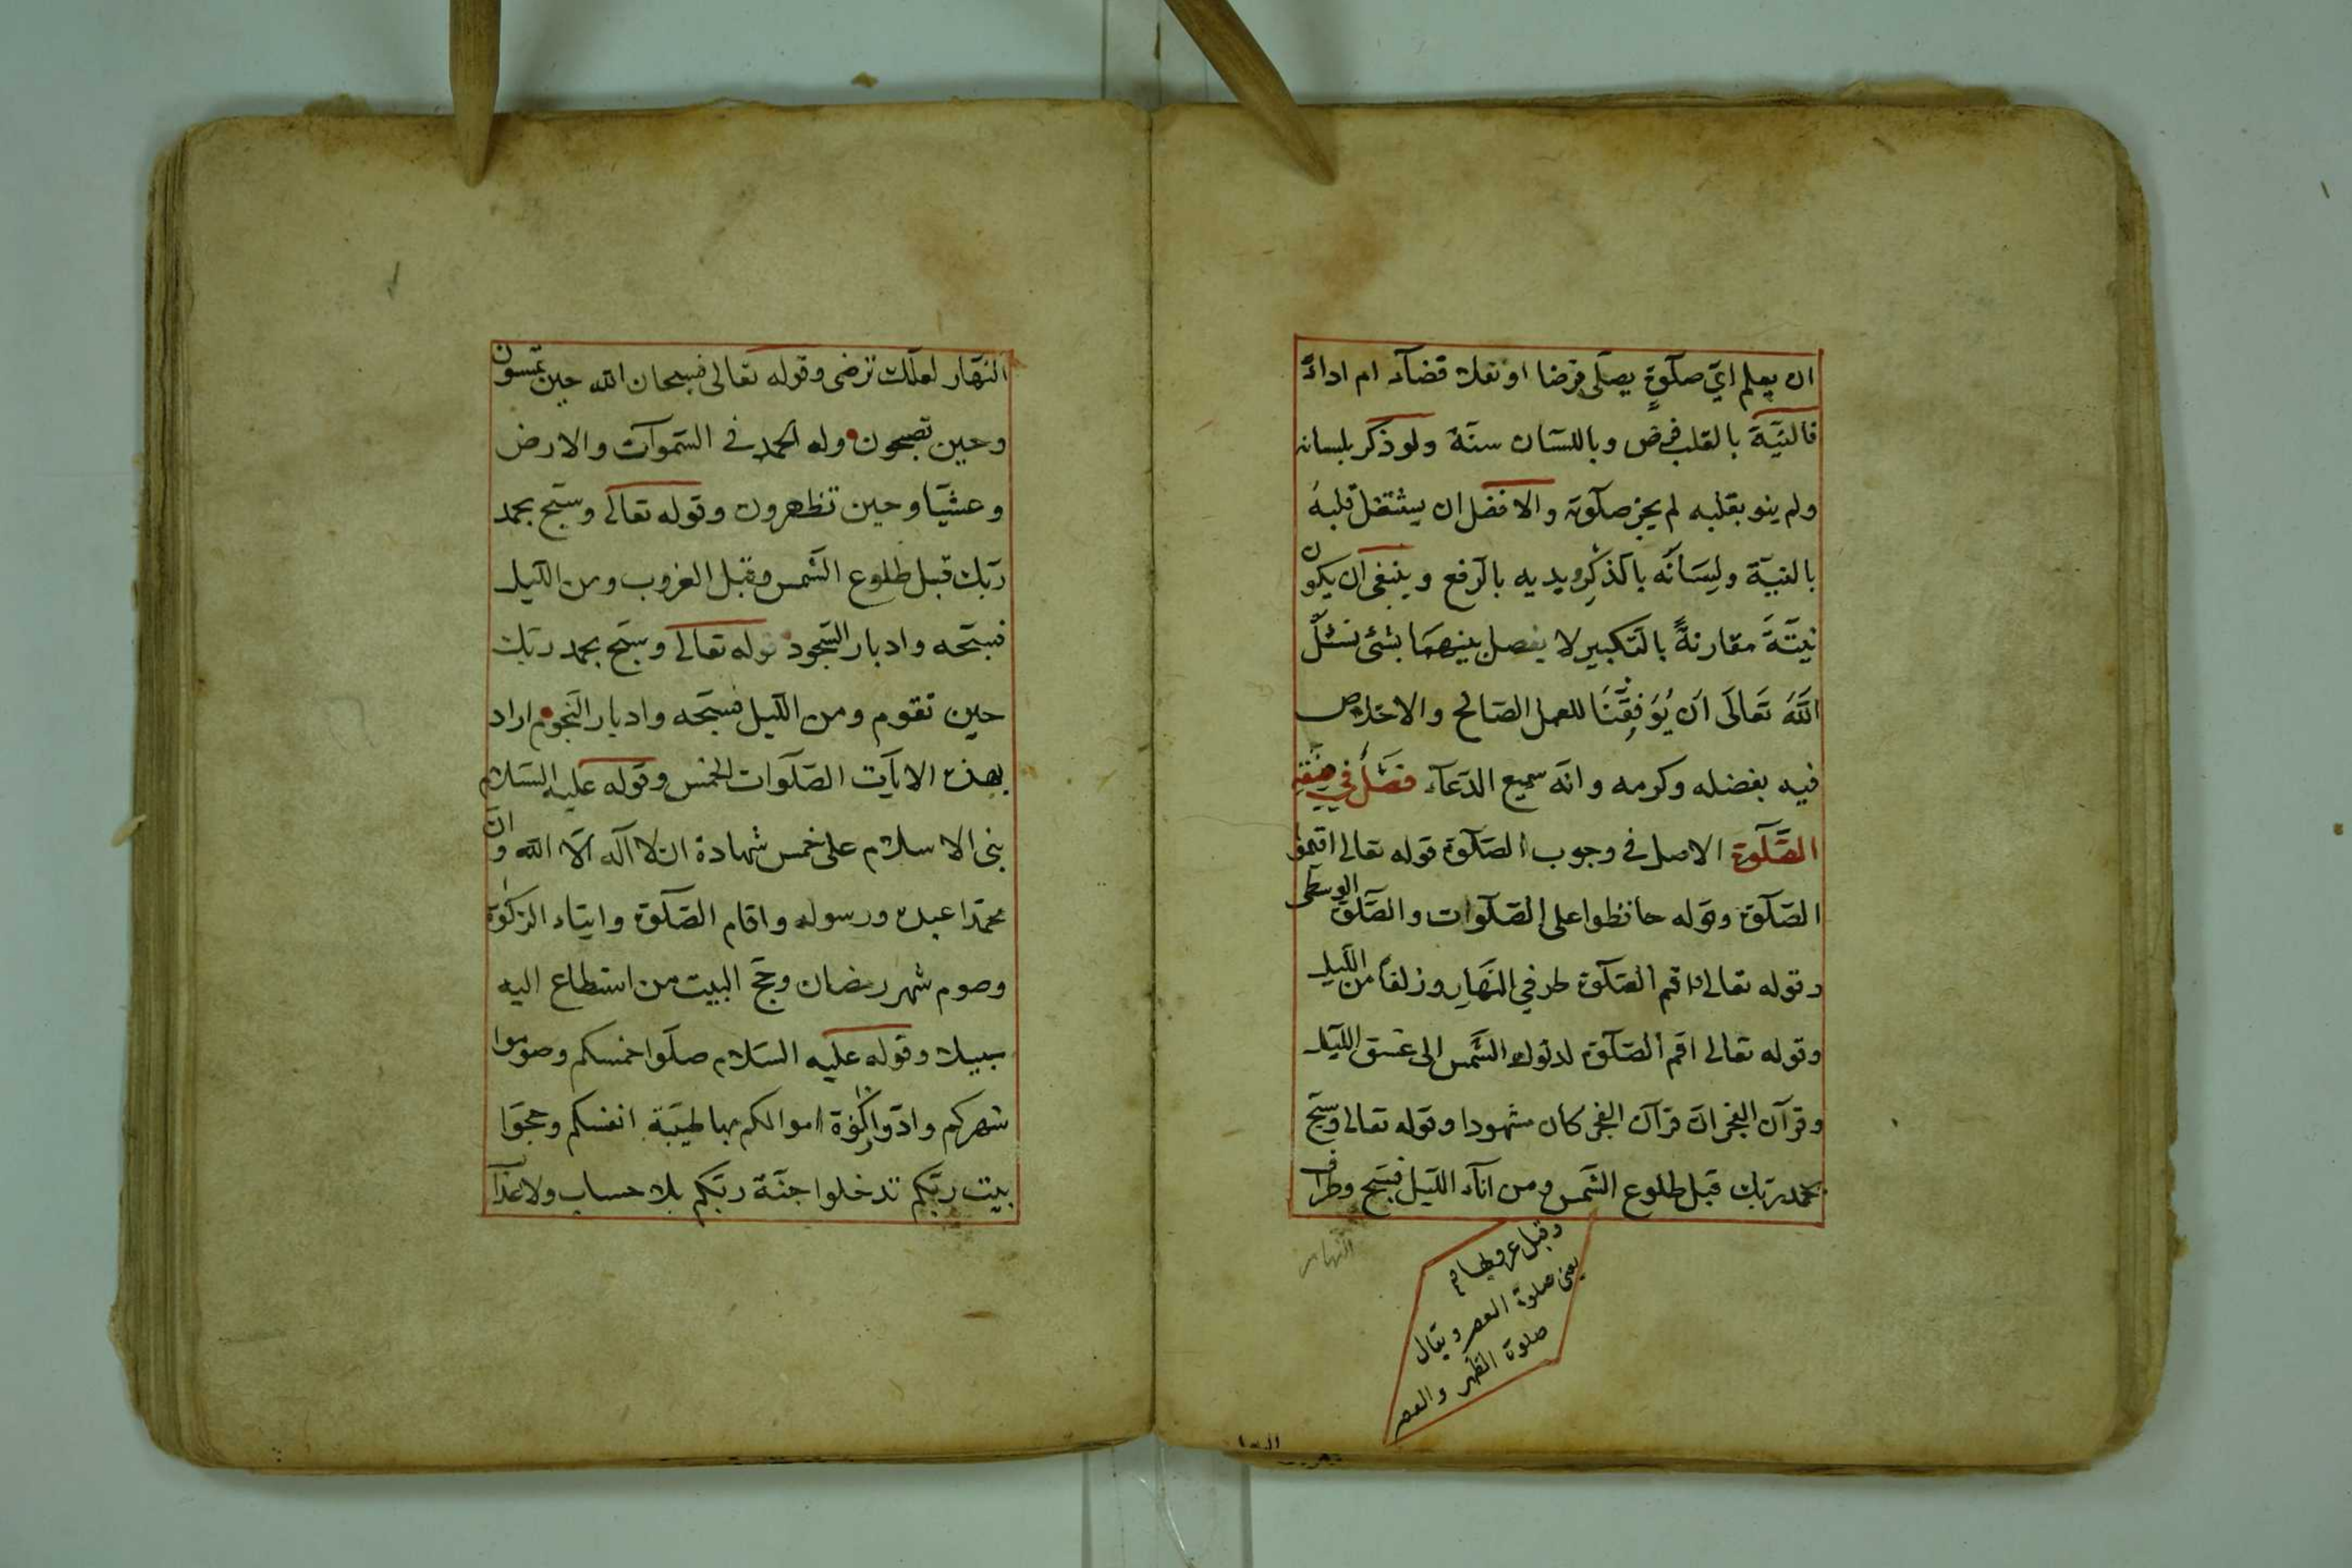 ان يعلم اىّ صلوة يصلّى فرضا او نفلا قضآء ام اداءً
فالنيّة بالقلب فرض وباللسان سنة ولو ذكر بلسانه
ولم ينو بقلبه لم يجز صلوته والافضل ان يشتغل قلبهُ
بالنيّة ولِسَانُه بالذكرِ ويديه بالرفع وينبغى ان يكون
نيّتَهَ مقارنةً بالتكبير لا يفصل بينهمَا بشئ نسئلُ
اللّهَ تَعَالَى اَن يُوَفِّقَنَا للعمل الصَالح والاخلاص
فيه بفضله وكرمه وانّه سميع الدّعآء فصل في صفة
الصَّلَوة الاصل فى وجوب الصلوة قوله تعالى اقيموا
الصلوة وقوله حافظوا على الصلوات والصلوة الوسطى
وقوله تعالى اقم الصلوة طرفي النهارِ وزلفاً من الليل
وقوله تعالى اقم الصلوة لدلوك الشمس الى غسق الليل
وقرآن الفجر انّ قرآن الفجر كان مشهودا وقوله تعالى وسبّح
بحمد ربّك قبل طلوع الشمس ومن انآء الليل فسبّح وطراف
النهار
وقبل غروبها
يعنى صلوة العصر ويقال
صلوة الظهر والعصر
النهار لعلّك ترضى وقوله تعالى فسبحان اللّه حين تمسون
وحين تصبحون وله الحمد فى السّموآت والارض
وعشيّا وحين تظهرون وقوله تعالى وسبّح بحمد
ربّك قبل طلوع الشّمس وقبل الغروب ومن الليل
فسبّحه وادبار السّجود قوله تعالى وسبّح بحمد ربّك
حين تقوم ومن الليل فسبّحه وادبار النجوم اراد
بهذه الايآت الصّلوات الخمس وقوله عليه السّلام
بنى الاسلام على خمس شهادة ان لا آله الّا اللّه وانّ
محمّدا عبده ورسوله واقام الصّلوة وايتاء الزكوة
وصوم شهر رمضان وحجّ البيت من استطاع اليه
سبيلا وقوله عليه السّلام صلّوا خمسكم وصوموا
شهركم وادّوا زكوة اموالكم بها طيّبة انفسكم وحجّوا
بيت ربّكم تدخلوا جنّة ربّكم بلا حساب ولا عذاب